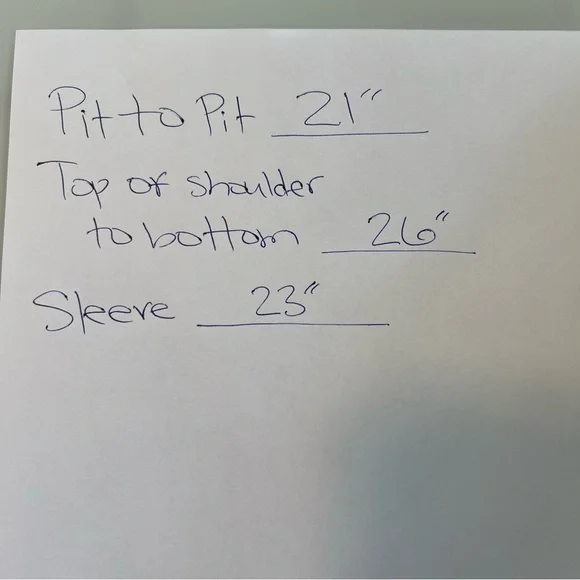 Pit to Pit 21"
Top of shoulder
to bottom 26"
Sleeve 23"